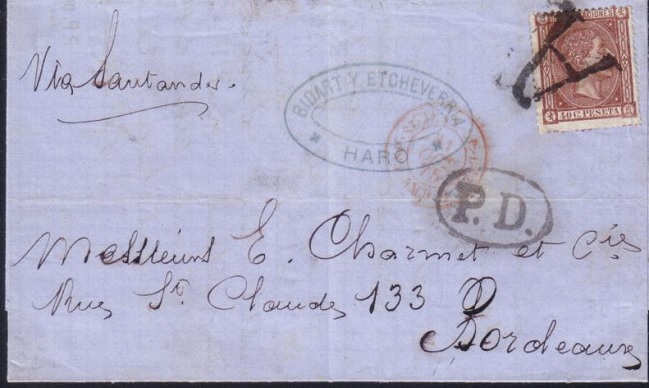 Via Santander.
COMUNICACIONES
40 C. PESETA
BIDART Y ETCHEVERRIA
HARO
P.D.
Messieurs E. Charmet et Cie
Rue St. Claude 133
Bordeaux